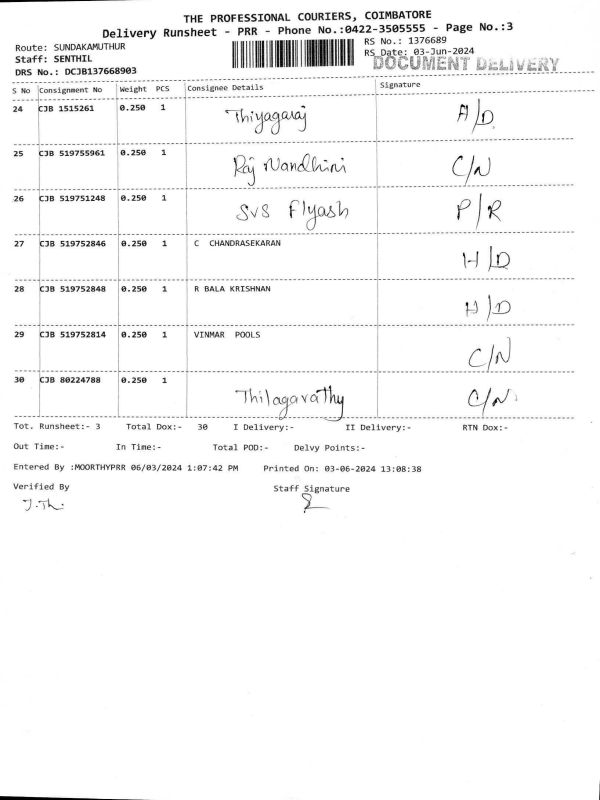 THE PROFESSIONAL COURIERS, COIMBATORE
Delivery Runsheet - PRR - Phone No.:0422-3505555 - Page No.:3
Route: SUNDAKAMUTHUR
RS No.: 1376689
Staff: SENTHIL
RS Date: 03-Jun-2024
DOCUMENT DELIVERY
DRS No.: DCJB137668903
S No Consignment No Weight PCS Consignee Details Signature
24 CJB 1515261 0.250 1 Thiyagaraj A/D
25 CJB 519755961 0.250 1 Raj Nandhini C/N
26 CJB 519751248 0.250 1 SVS Flyash P/R
27 CJB 519752846 0.250 1 C CHANDRASEKARAN H/D
28 CJB 519752848 0.250 1 R BALA KRISHNAN H/D
29 CJB 519752814 0.250 1 VINMAR POOLS C/N
30 CJB 80224788 0.250 1 Thilagavathy C/N
Tot. Runsheet:- 3 Total Dox:- 30 I Delivery:- II Delivery:- RTN Dox:-
Out Time:- In Time:- Total POD:- Delvy Points:-
Entered By :MOORTHYPRR 06/03/2024 1:07:42 PM Printed On: 03-06-2024 13:08:38
Verified By Staff Signature